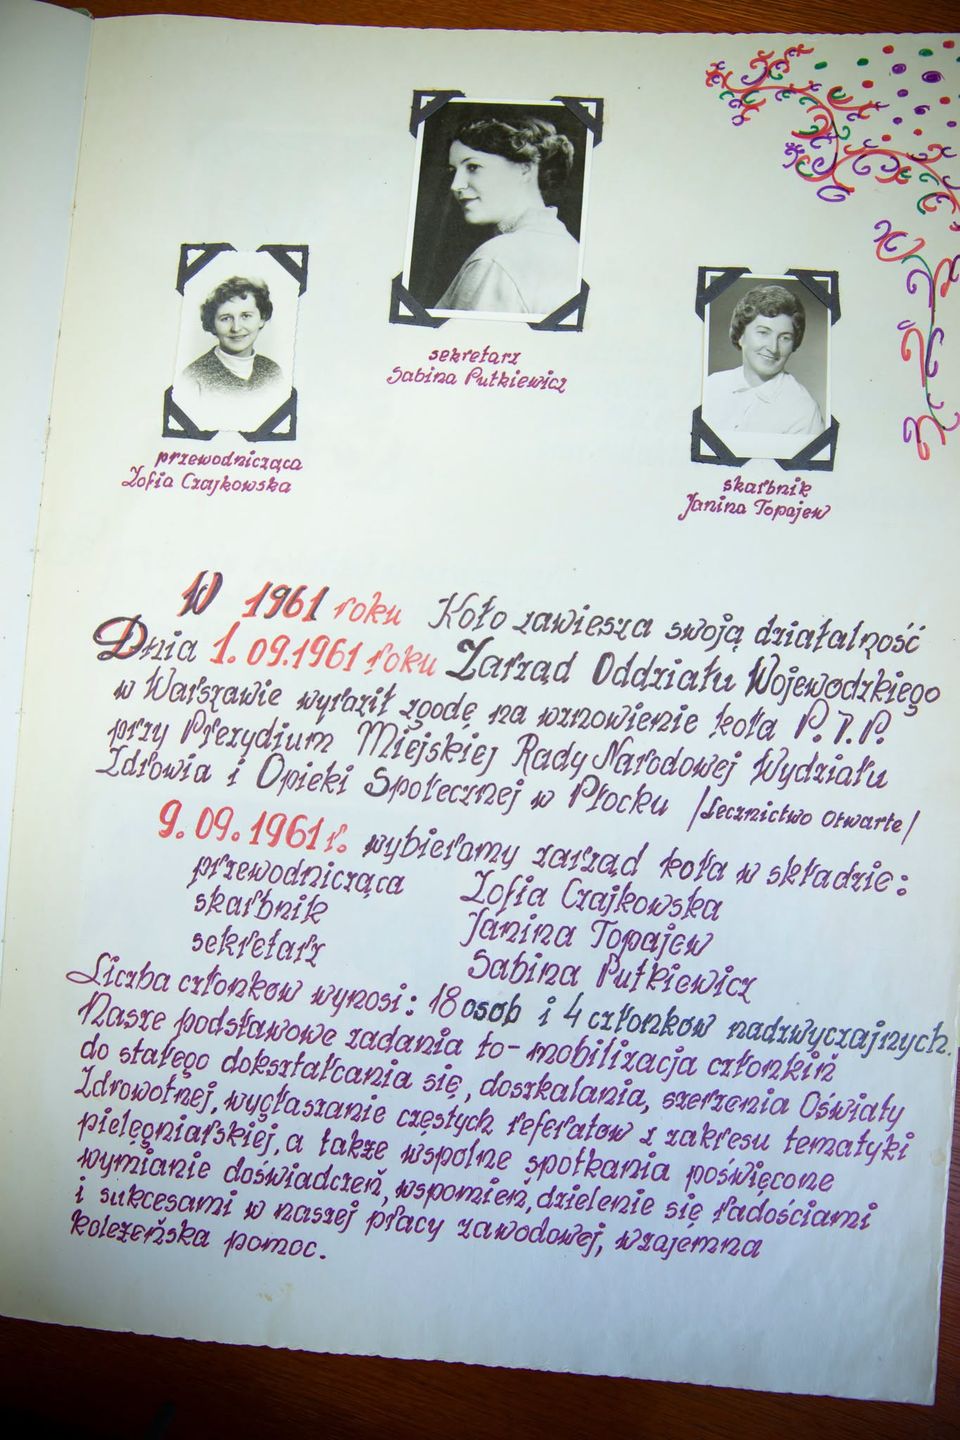 sekretarz
Sabina Putkiewicz
przewodnicząca
Zofia Czajkowska
skarbnik
Janina Topajew
W 1961 roku Koło zawiesza swoją działalność
Dnia 1.09.1961 roku Zarząd Oddziału Wojewodzkiego
w Warszawie wyraził zgodę na wznowienie koła P.T.P.
przy Prezydium Miejskiej Rady Narodowej Wydziału
Zdrowia i Opieki Społecznej w Płocku /Lecznictwo Otwarte/
9.09.1961r. wybieramy zarząd koła w składzie:
przewodnicząca Zofia Czajkowska
skarbnik Janina Topajew
sekretarz Sabina Putkiewicz
Liczba członkow wynosi: 18 osob i 4 członkow nadzwyczajnych.
Nasze podstawowe zadania to - mobilizacja członkiń
do stałego dokształcania się, doszkalania, szerzenia Oświaty
Zdrowotnej, wygłaszanie częstych referatow z zakresu tematyki
pielęgniarskiej, a także wspolne spotkania poświęcone
wymianie doświadczeń, wspomień, dzielenie się radościami
i sukcesami w naszej pracy zawodowej, wzajemna
koleżeńska pomoc.